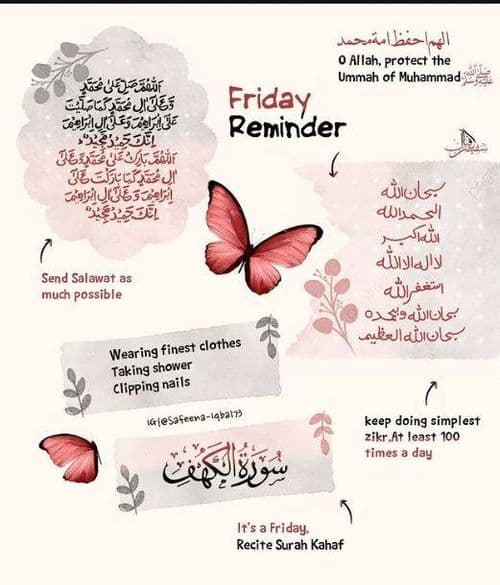 الهم احفظ امة محمد
O Allah, protect the
Ummah of Muhammad ﷺ
Friday
Reminder
اللهم صل على محمد
وعلى ال محمد كما صليت
على ابراهيم وعلى ال ابراهيم
انك حميد مجيد
اللهم بارك على محمد وعلى
ال محمد كما باركت على
ابراهيم وعلى ال ابراهيم
انك حميد مجيد
Send Salawat as
much possible
سبحان الله
الحمد الله
الله اكبر
لا اله الا الله
استغفر الله
سبحان الله وبحمده
سبحان الله العظيم
keep doing simplest
zikr.At least 100
times a day
Wearing finest clothes
Taking shower
Clipping nails
IG|@Safeena-Iqbal73
سورة الكهف
It's a Friday,
Recite Surah Kahaf